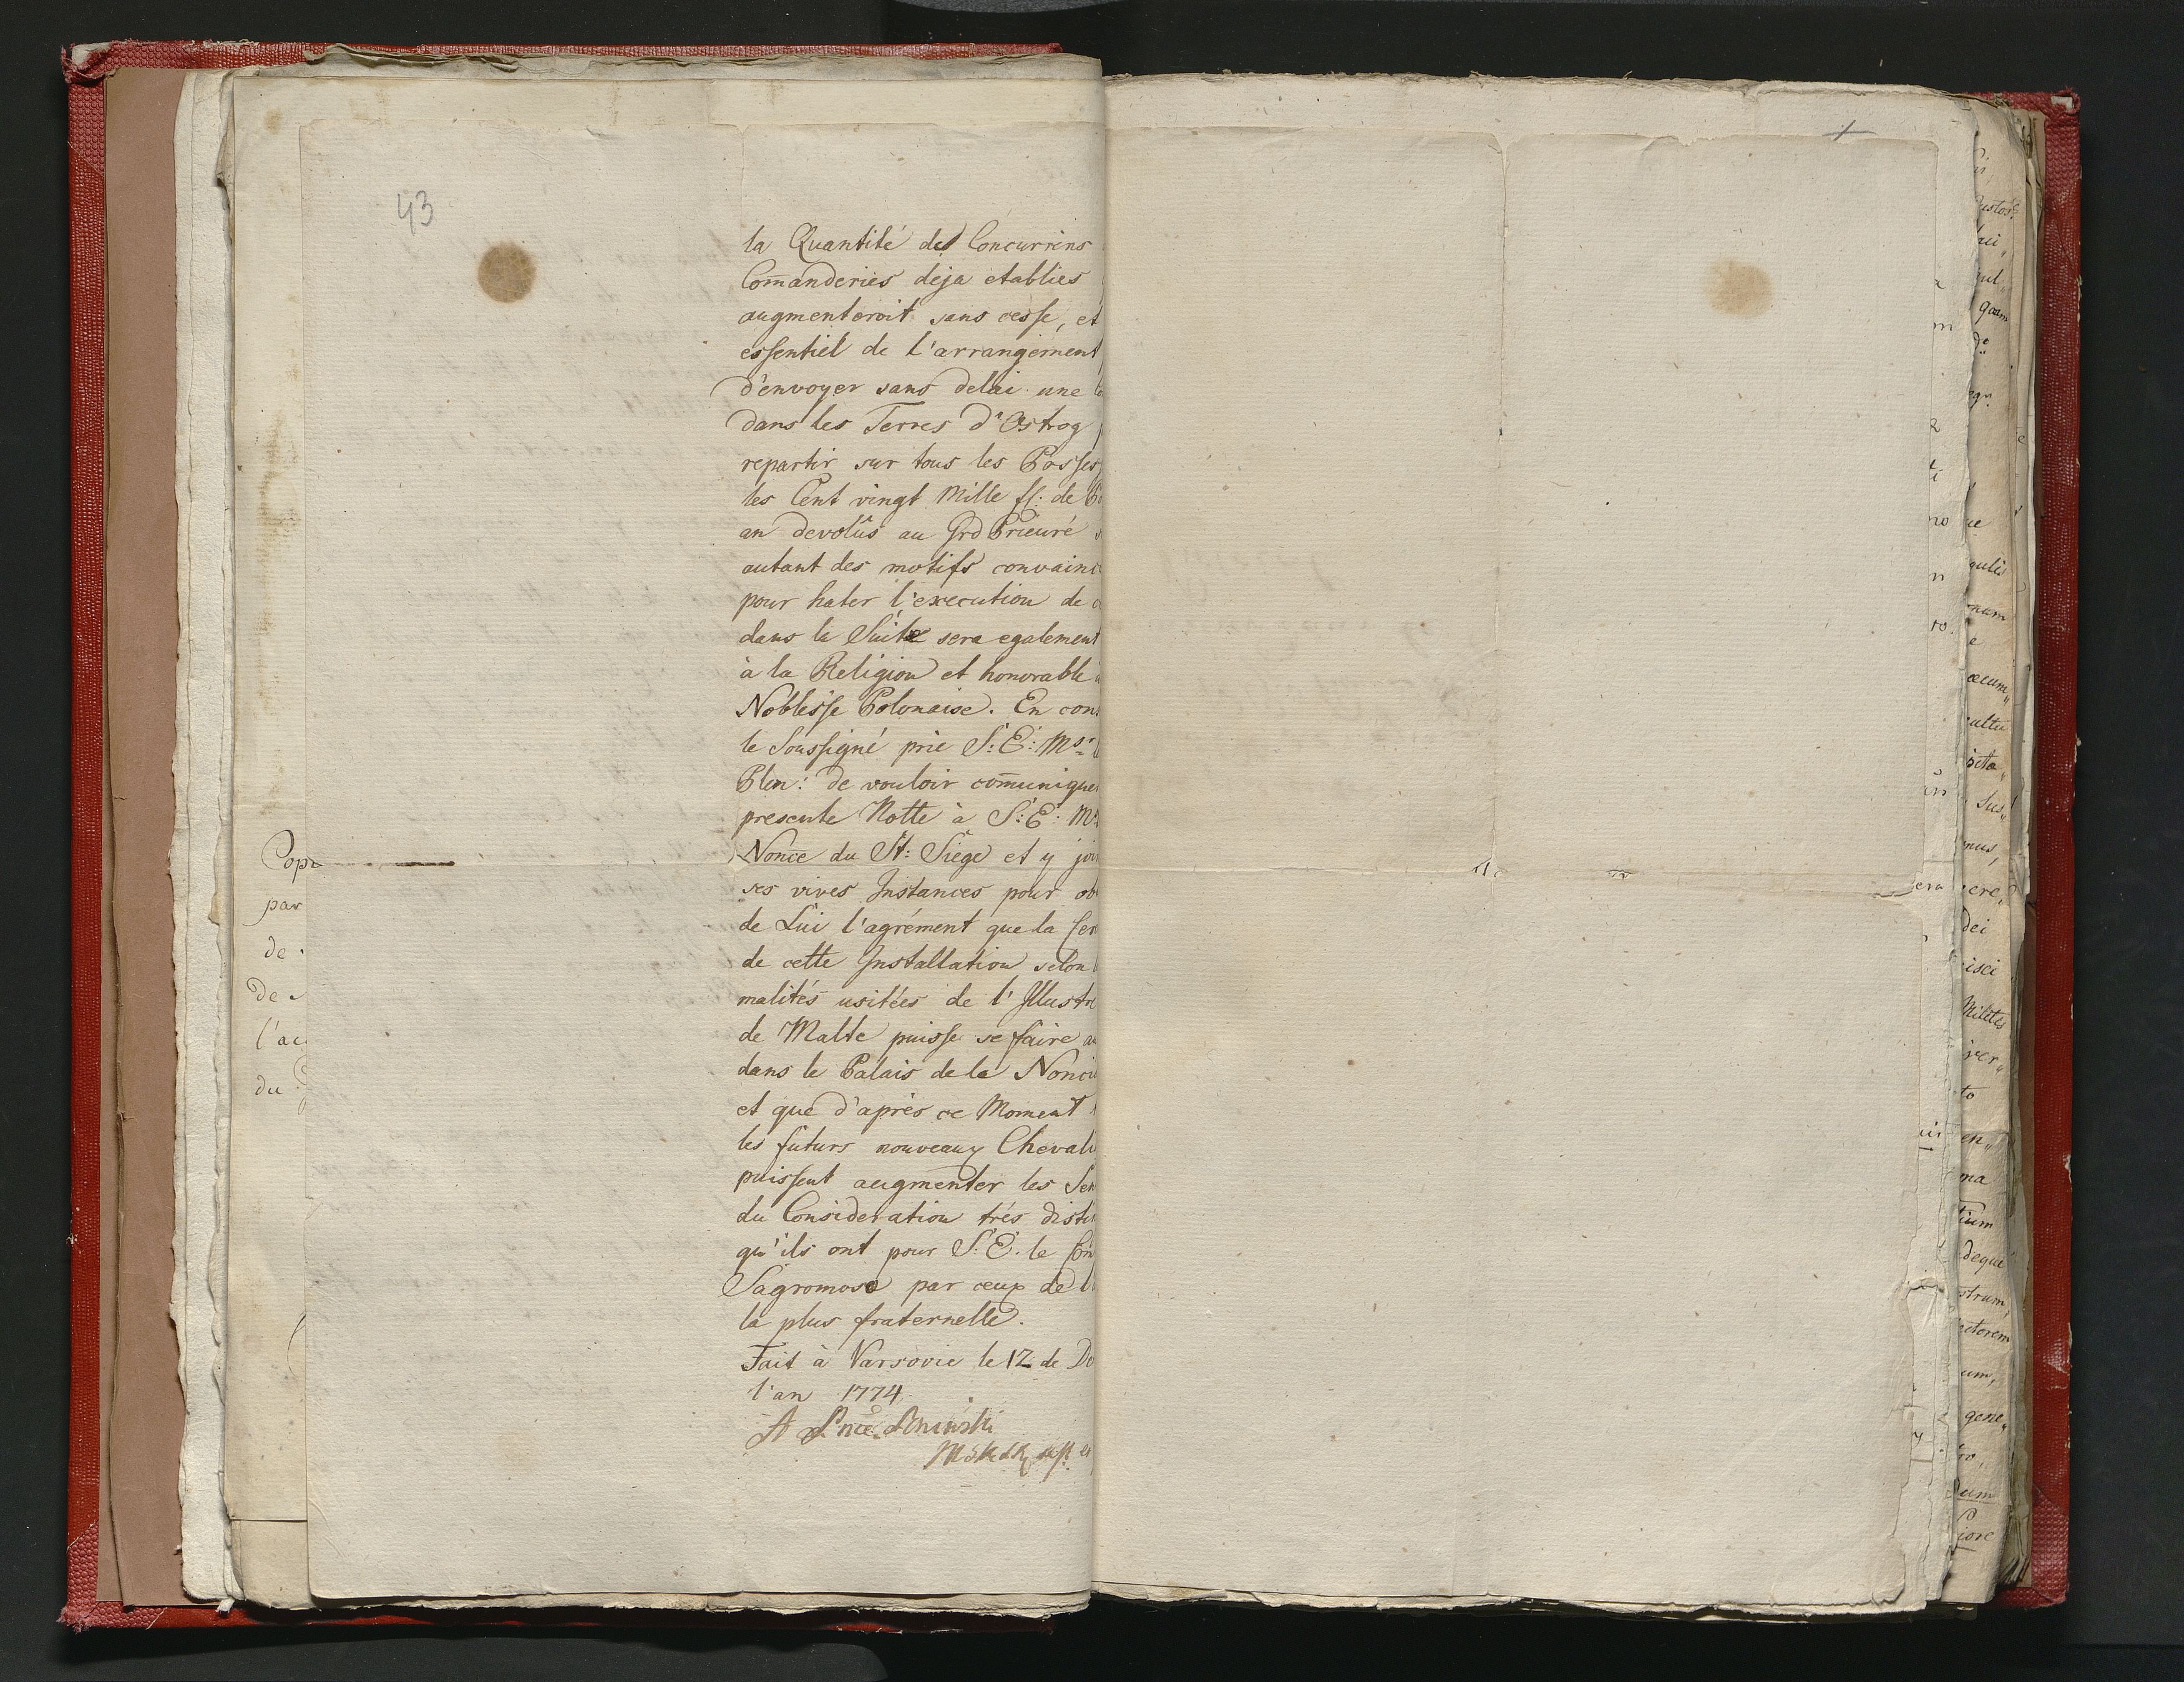 43
la Quantité des Concurrens
Com̄anderies deja etablies
augmenteroit sans cesse, et
essentiel de l'arrangement
d'envoyer sans delai une
dans les Terres d'Ostrog
repartir sur tous les Posses
les Cent vingt Mille fl: de
an devolûs au Grd Prieuré
autant des motifs convainc
pour hater l'execution de
dans la Suite sera egalement
à la Religion et honorable
Noblesse Polonaise. En con
le Soussigné prie S: E: Msr
Plen: de vouloir com̄unique
presente Notte à S: E: M
Nonce du St: Siege et y join
ses vives Instances pour ob
de Lui l'agrément que la Cer
de cette Installation selon
malités usitées de l'Illustre
de Malte puisse se faire au
dans le Palais de la Nonci
et que d'après ce Moment
les futurs nouveaux Cheval
puissent augmenter les Sen
du Consideration trés disti
qu'ils ont pour S. E. le Com
Sagromoso par ceux de l
la plus fraternelle.
Fait à Varsovie le 12 de De
l'an 1774
A Pnce Poninski
Cop
par
de
de
l'ac
du
quam
Milites
deque
strum,
ectorem
um,
gene„